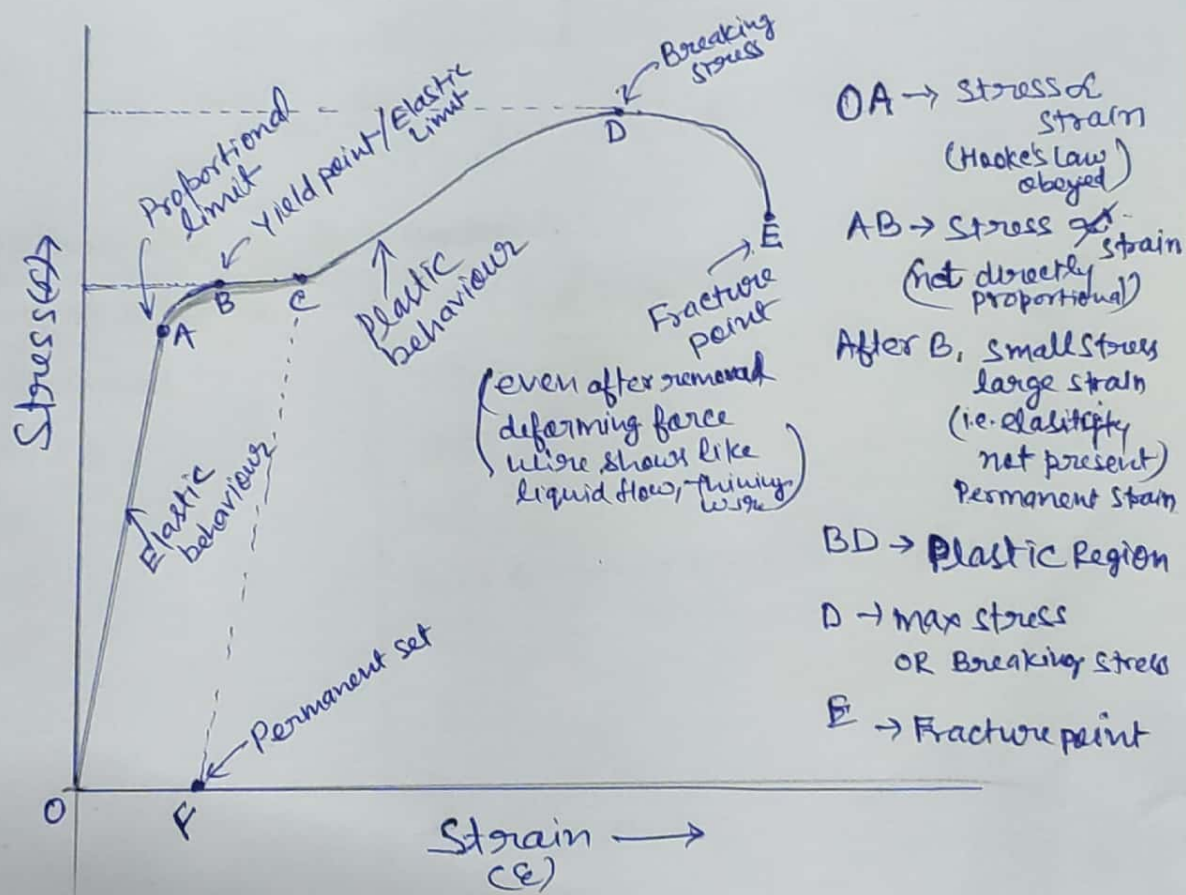 Breaking
stress
D
Proportional
limit
Yield point/Elastic
limit
A
B
C
Plastic
behaviour
E
Fracture
point
(even after removal
deforming force
wire shows like
liquid flow, thining
wire)
Elastic
behaviour
Permanent set
O
F
Stress
Strain →
(ε)
OA → Stress ∝
strain
(Hooke's Law
obeyed)
AB → Stress ∝̸
strain
(not directly
proportional)
After B, small stress
large strain
(i.e. elasiticity
not present)
Permanent strain
BD → Plastic Region
D → max stress
OR Breaking stress
E → Fracture point